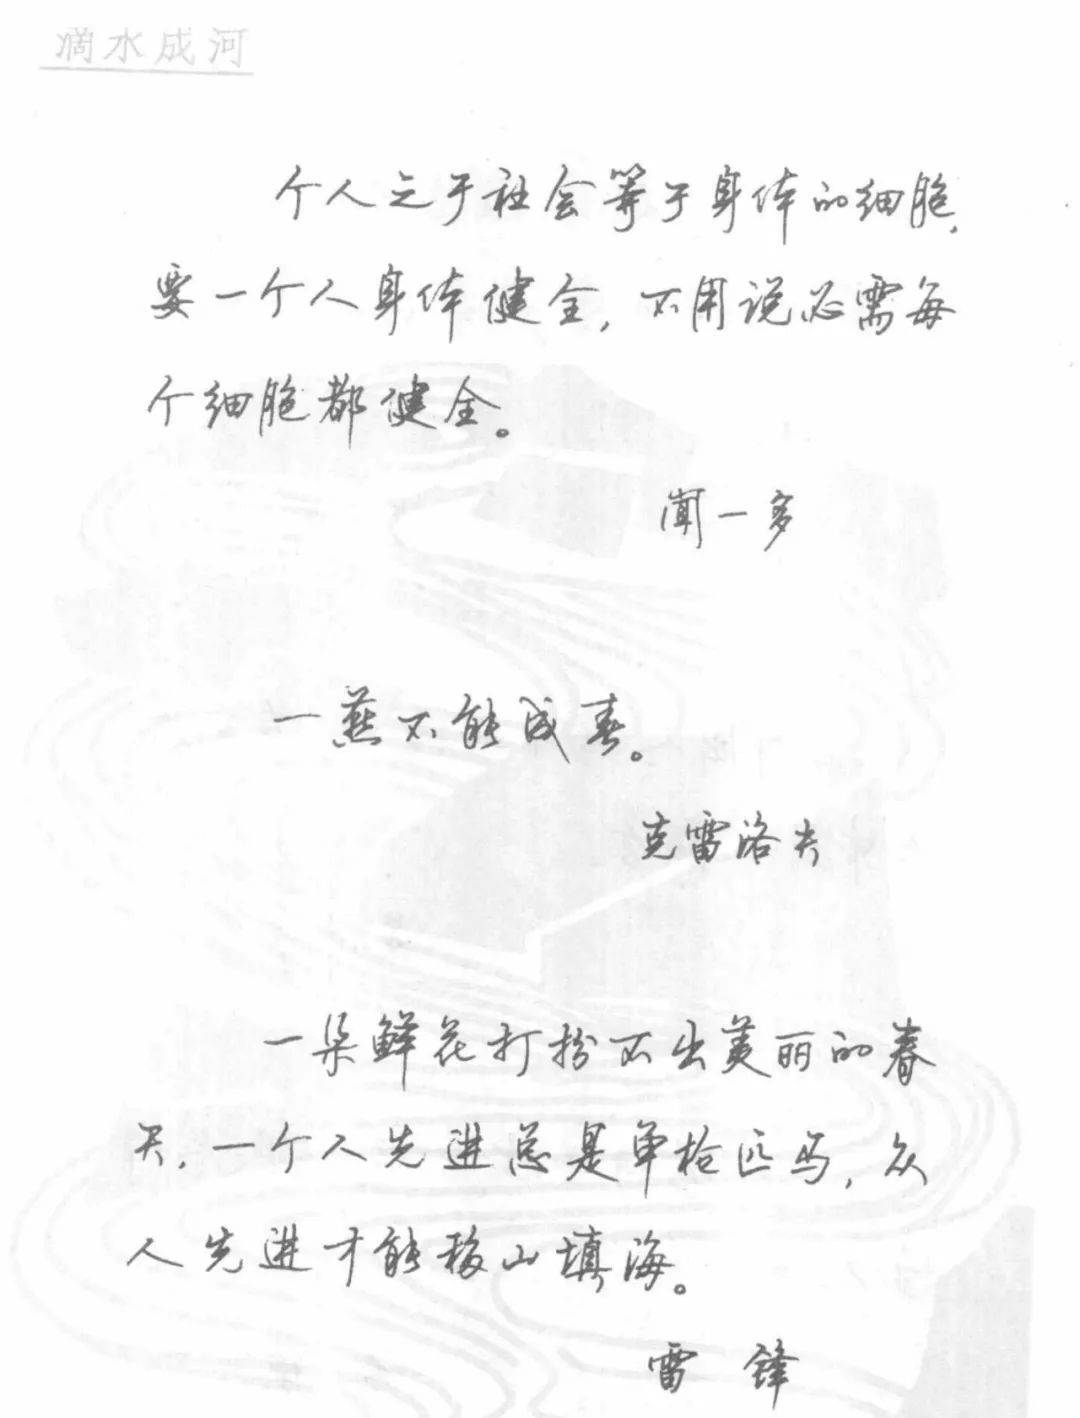 滴水成河
个人之于社会等于身体的细胞,
要一个人身体健全,不用说必需每
个细胞都健全。
闻一多
一燕不能成春。
克雷洛夫
一朵鲜花打扮不出美丽的春
天,一个人先进总是单枪匹马,众
人先进才能移山填海。
雷锋